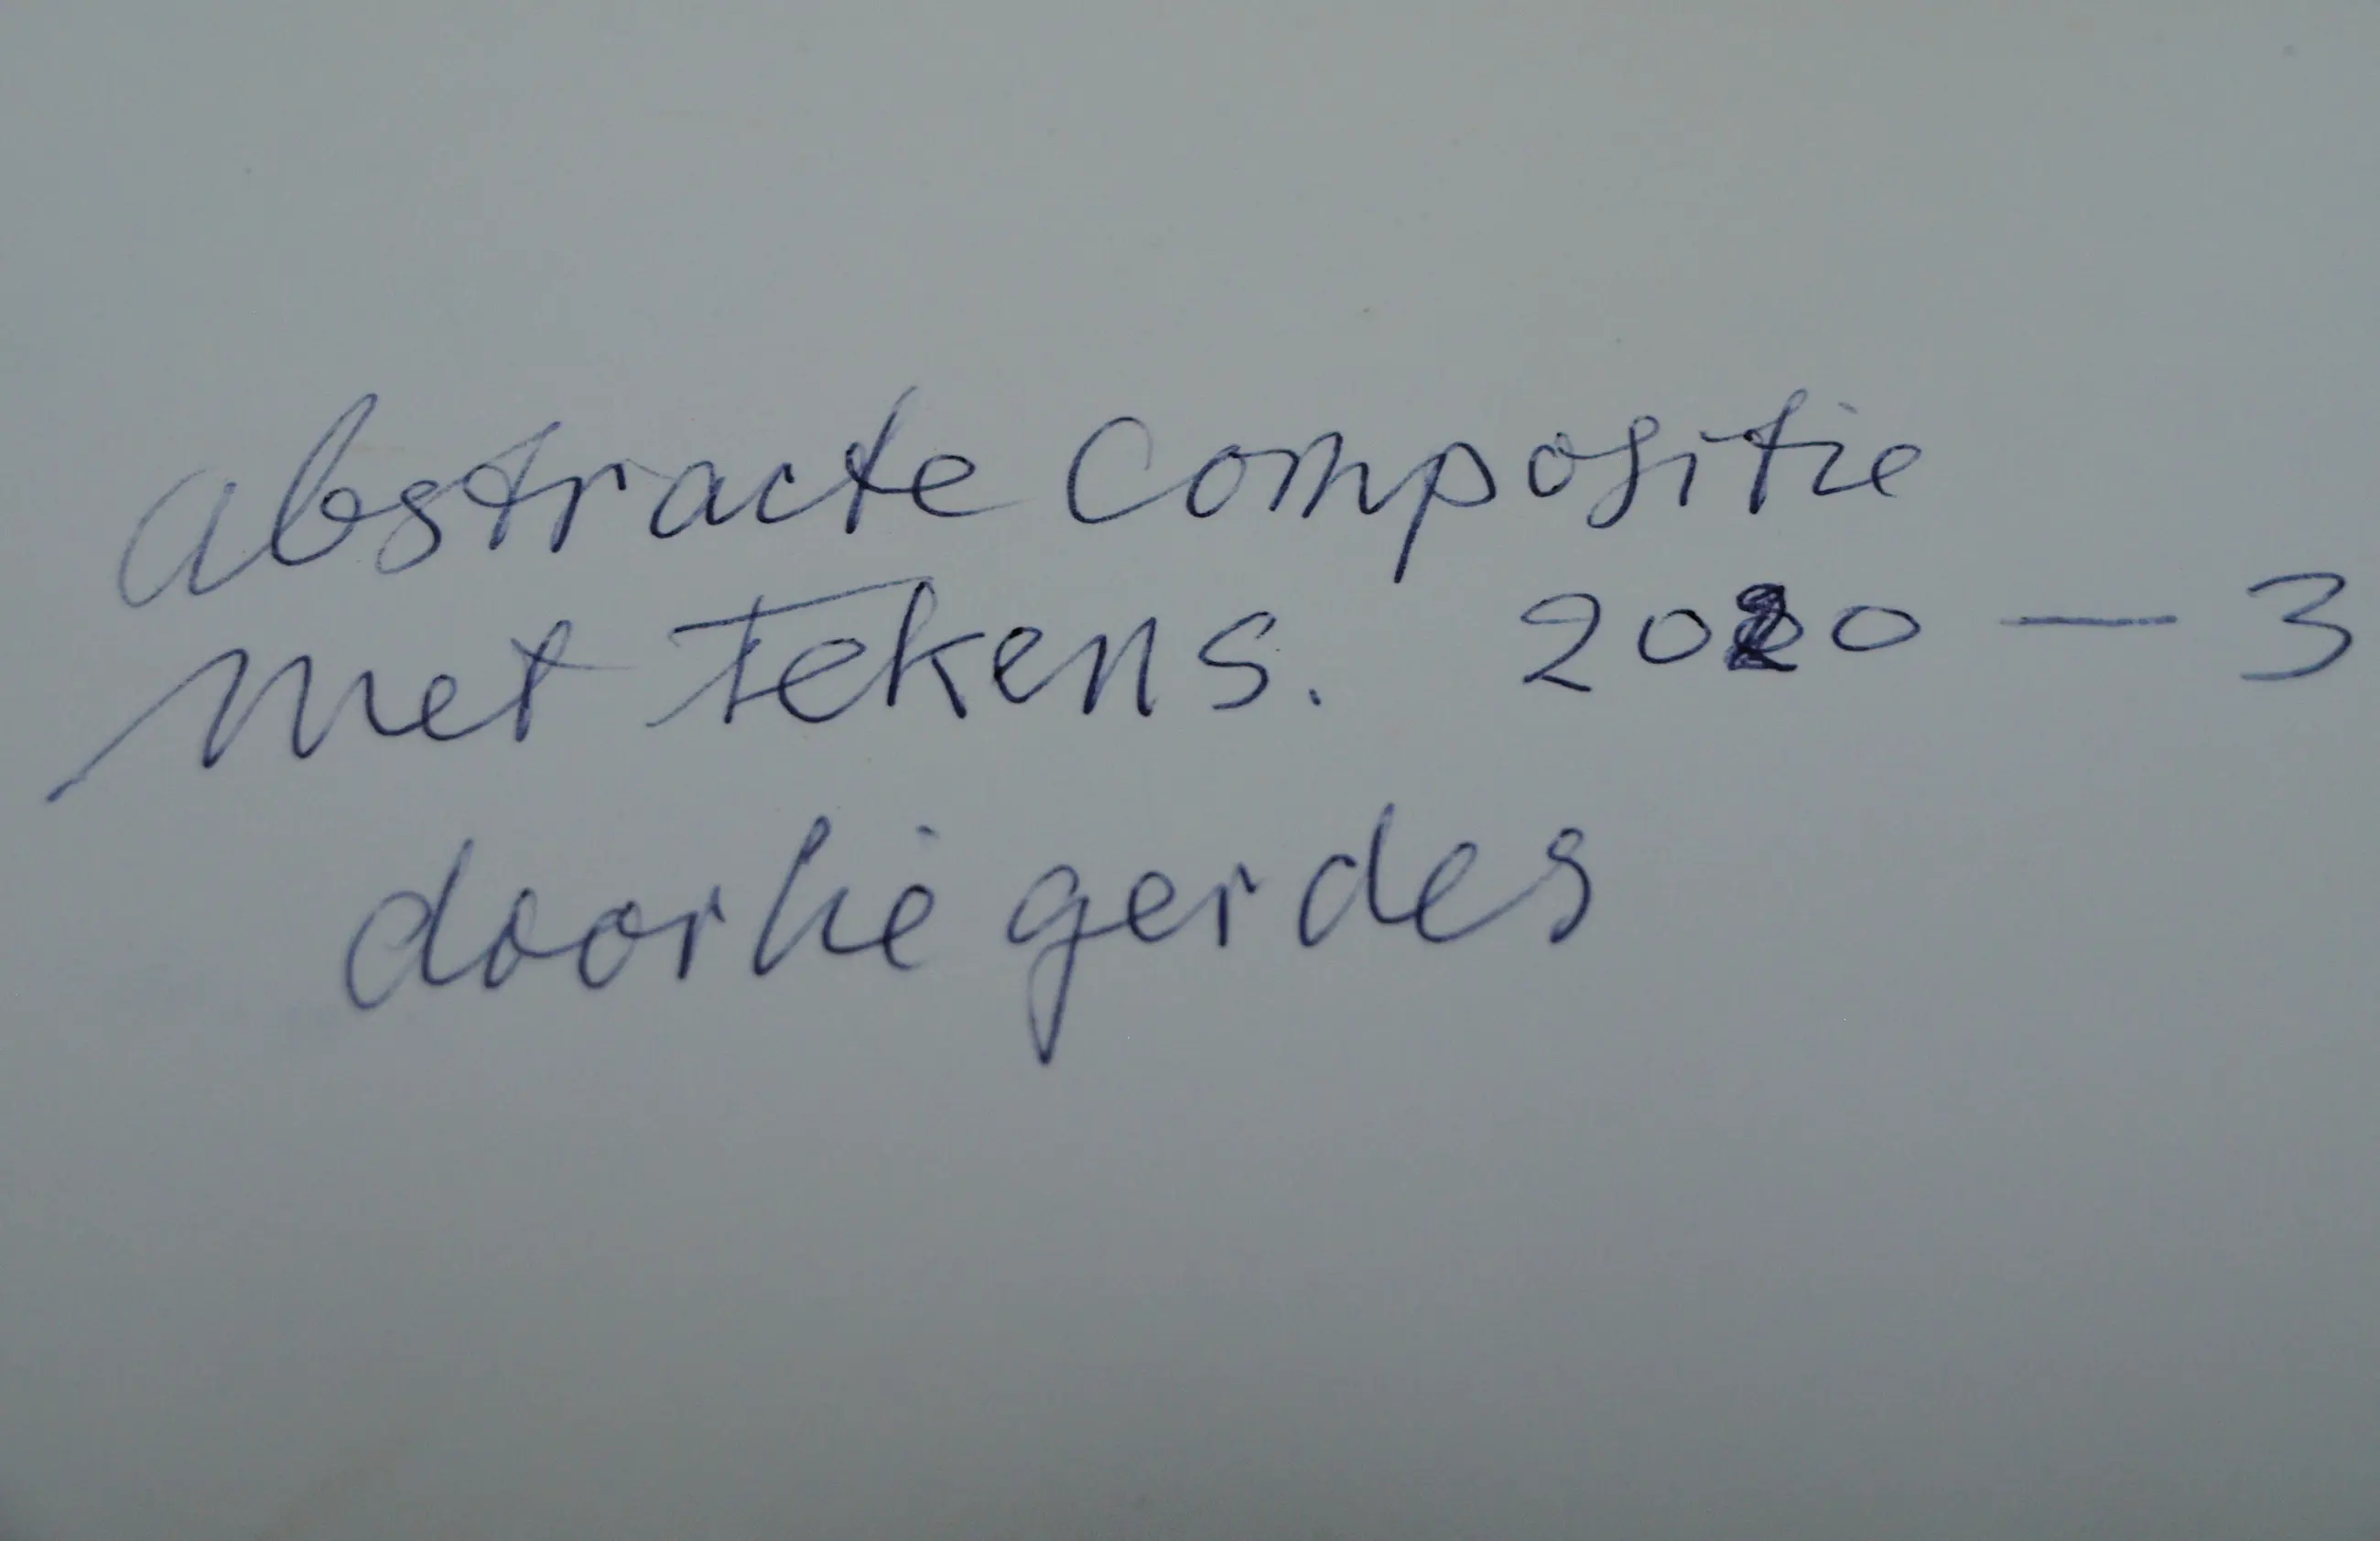 abstracte compositie
met tekens. 2020 — 3
doorlie gerdes